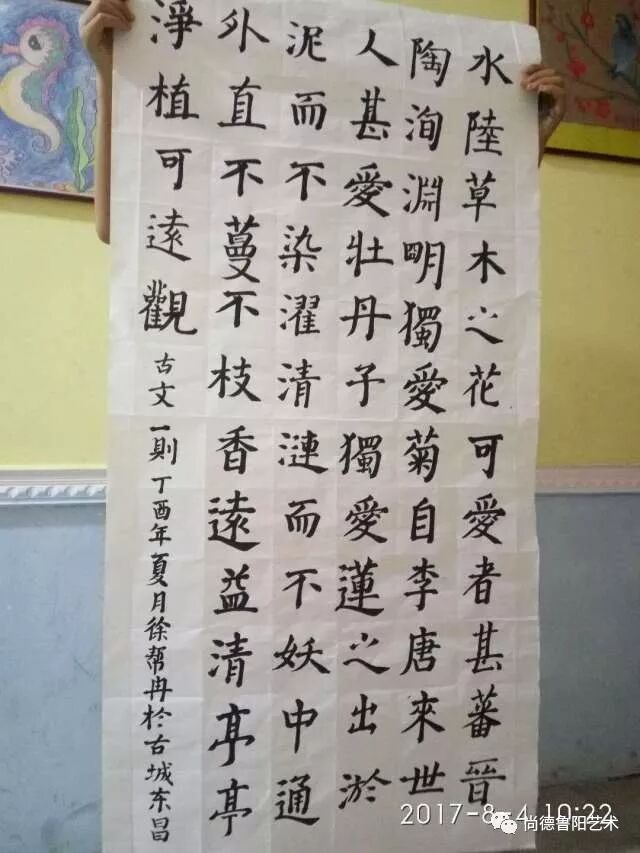 水陸草木之花可愛者甚蕃晉
陶洵淵明獨愛菊自李唐來世
人甚愛牡丹子獨愛蓮之出淤
泥而不染濯清漣而不妖中通
外直不蔓不枝香遠益清亭亭
淨植可遠觀
古文一則丁酉年夏月徐帮冉於古城东昌
2017-8-4 10:22
尚德鲁阳艺术